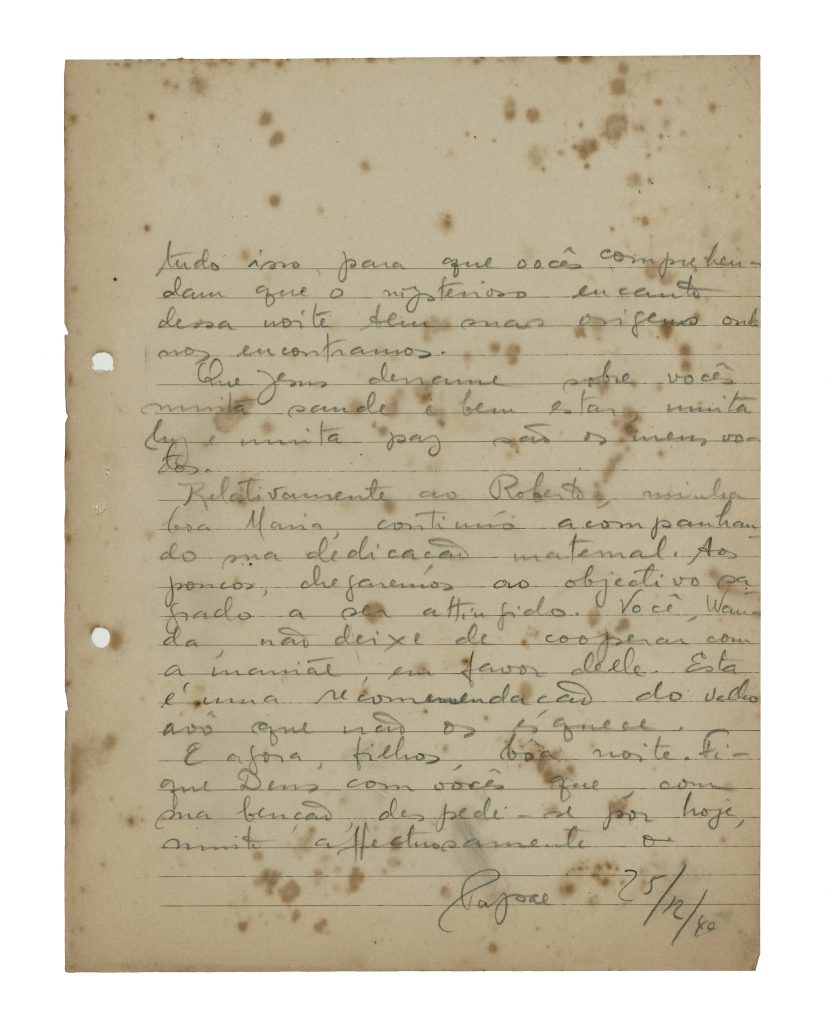 tudo isso, para que vocês comprehen-
dam que o mysterioso encanto
dessa noite tem suas origens onde
nos encontramos.
Que Jesus derrame sobre vocês
muita saude e bem estar, muita
luz e muita paz são os meus vo-
tos.
Relativamente ao Roberto, minha
boa Maria, continúo acompanhan-
do sua dedicação maternal. Aos
poucos, chegaremos ao objectivo sa-
grado a ser attingido. Você, Wan-
da, não deixe de cooperar com
a mamãe, em favor delle. Esta
é uma recomendação do velho
avô que não os esquece.
E agora, filhos, bôa noite. Fi-
que Deus com vocês que, com
sua benção, despedi-se por hoje,
muito affectuosamente o
Papae 25/12/40